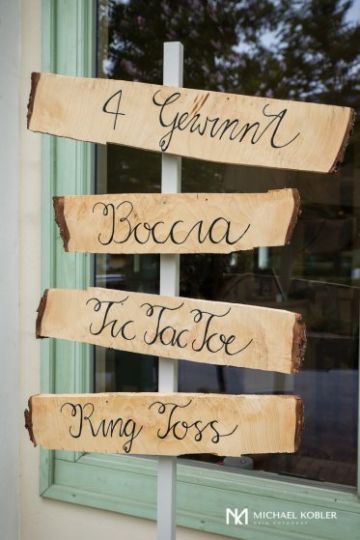 4 Gewinnt
Boccia
Tic Tac Toe
Ring Toss
MICHAEL KOBLER